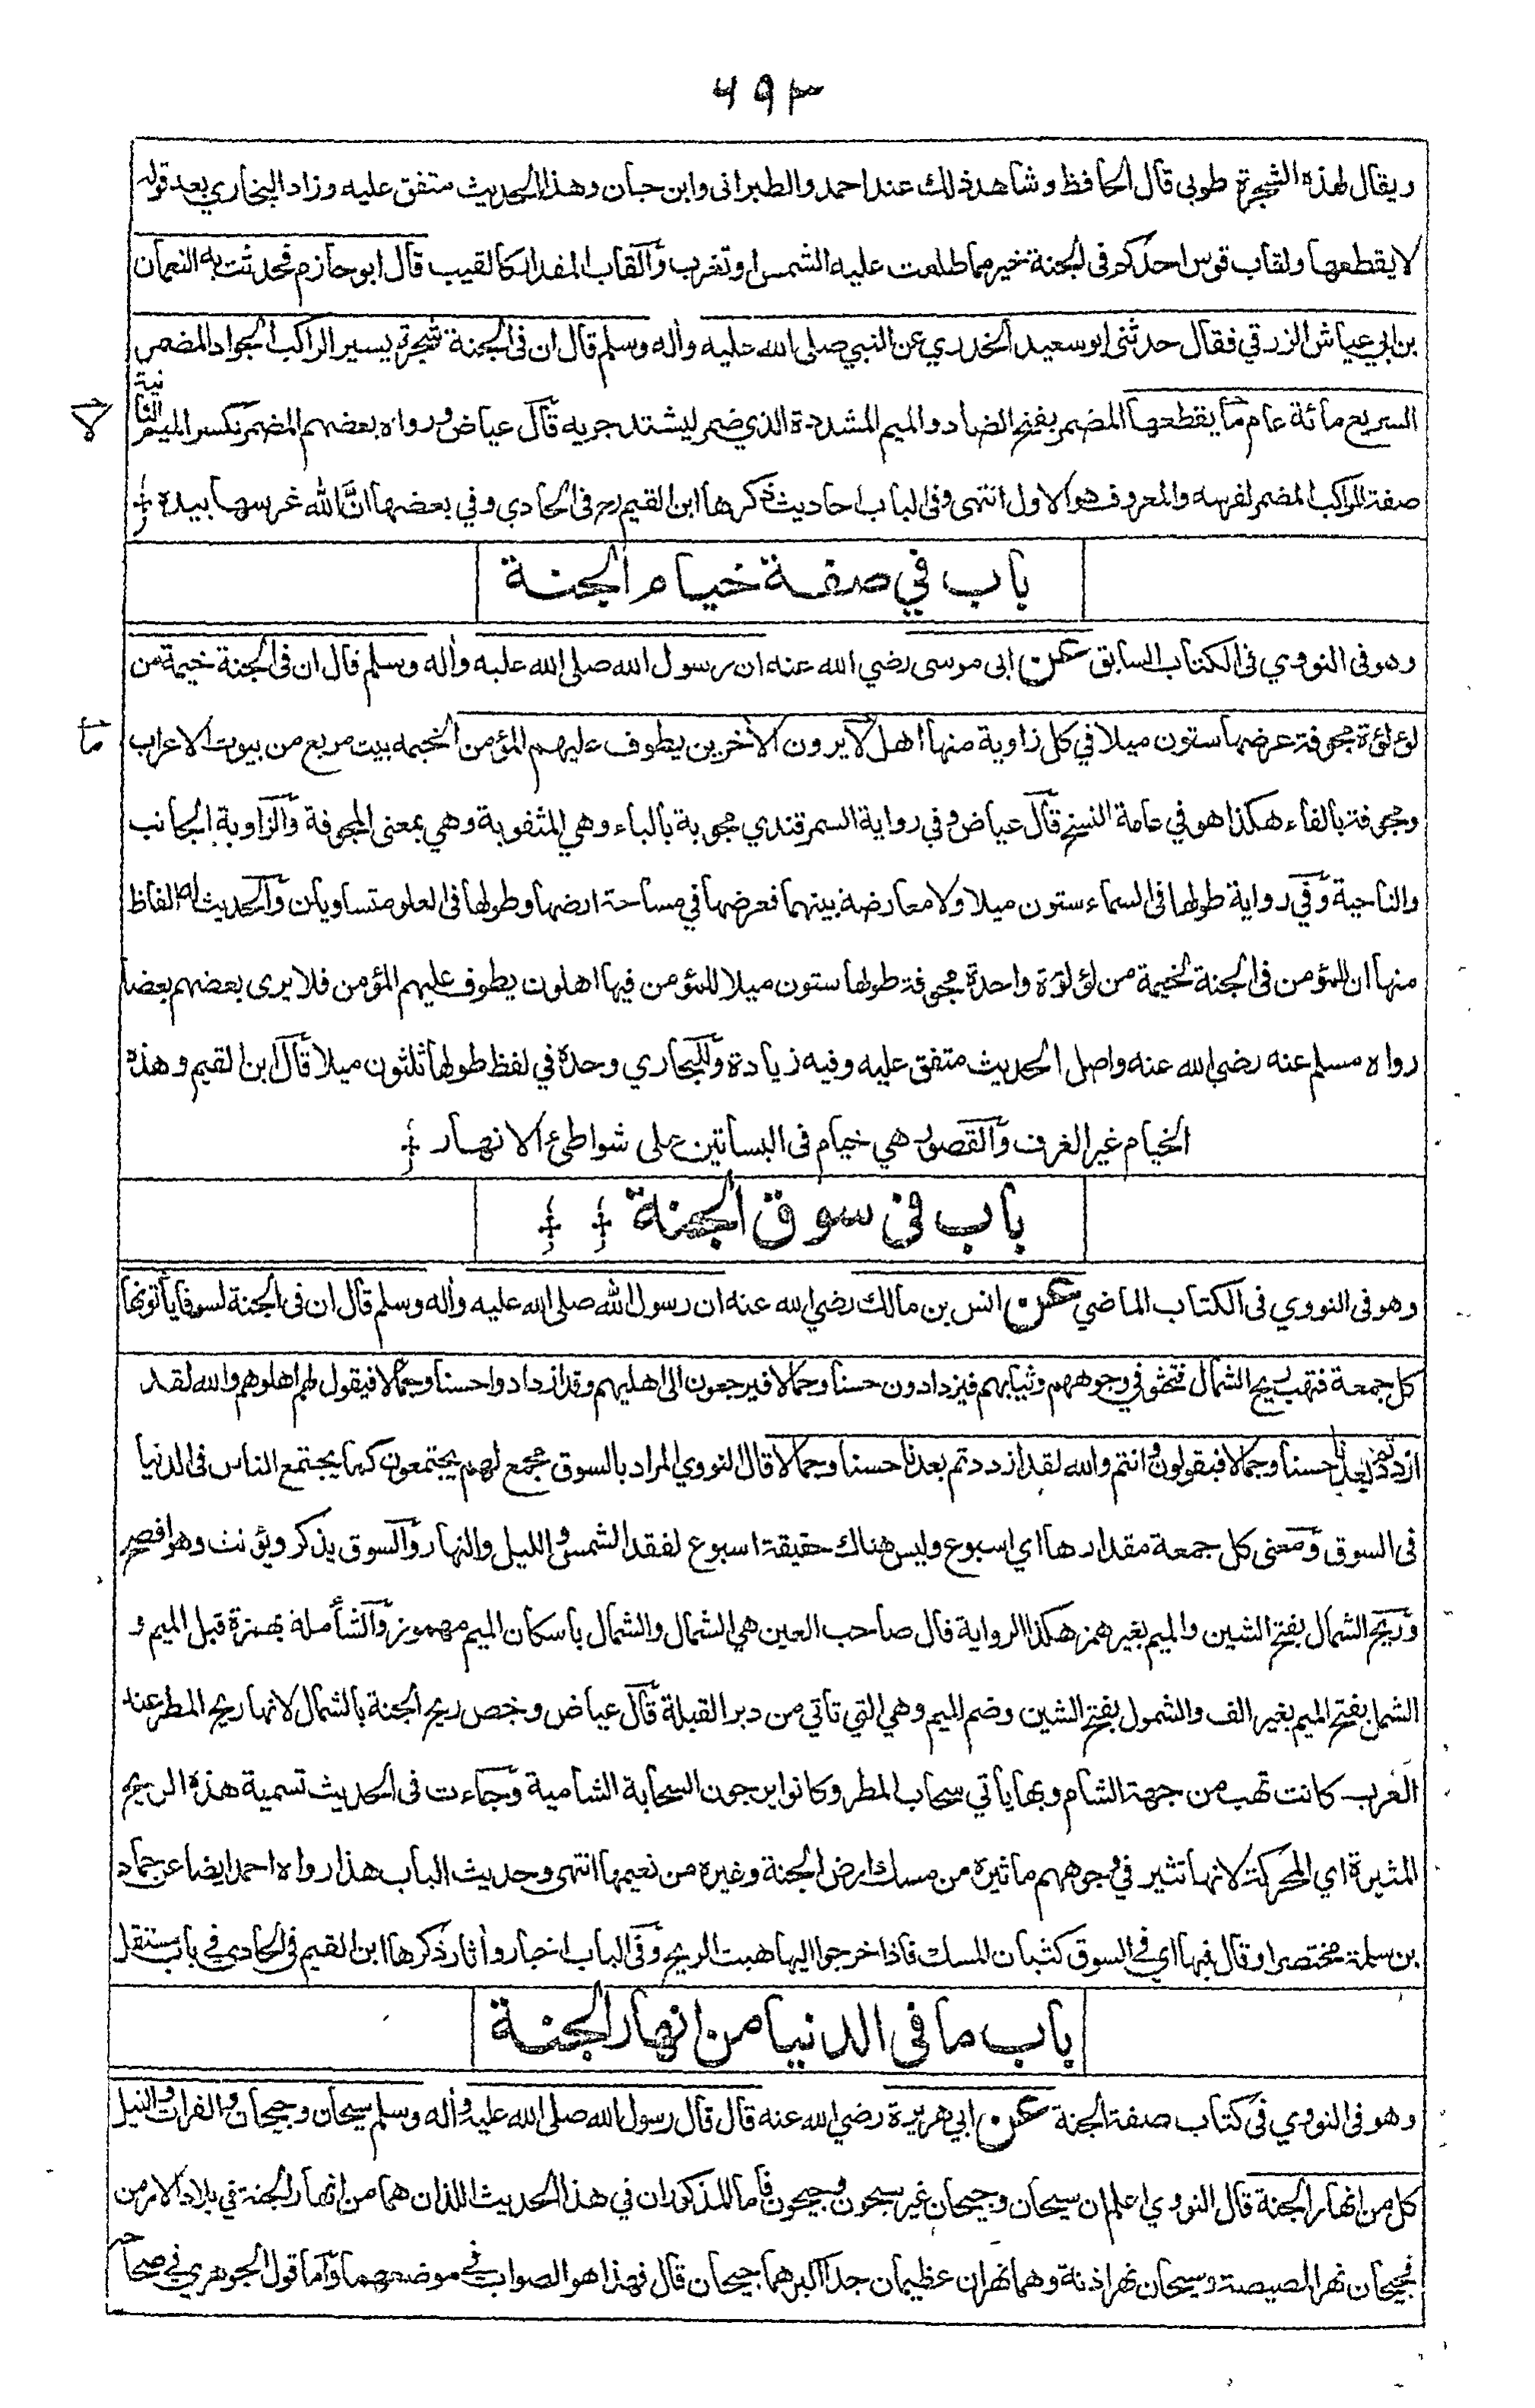 ٦٩٢
ويقال لهذه الشجرة طوبى قال الحافظ وشاهد ذلك عند احمد والطبرانى وابن حبان وهذا الحديث متفق عليه وزاد البخاري بعد قوله
لا يقطعها ولقاب قوس احدكم فى الجنة خير مما طلعت عليه الشمس او تغرب والقاب المقدار كالقيب قال ابو حازم فحدثت به النعمان
بن ابي عياش الزرقي فقال حدثنى ابو سعيد الخدري عن النبي صلى الله عليه واله وسلم قال ان فى الجنة شجرة يسير الراكب الجواد المضمر
السريع مائة عام ما يقطعها المضمر بفتح الضاد والميم المشددة الذي ضمر ليشتد جريه قال عياض ورواه بعضهم المضمر بكسر الميم الثانية
لا
صفة للراكب المضمر لفرسه والمعروف هو الاول انتهى وفى الباب احاديث ذكرها ابن القيم رح فى الحادي وفي بعضها ان الله غرسها بيده
باب في صفة خيام الجنة
وهو فى النووي فى الكتاب السابق عن ابى موسى رضي الله عنه ان رسول الله صلى الله عليه واله وسلم قال ان فى الجنة خيمة من
لؤلؤة مجوفة عرضها ستون ميلا في كل زاوية منها اهل لا يرون الاخرين يطوف عليهم المؤمن الخيمه بيت مربع من بيوت الاعراب
ما
ومجوفة بالفاء هكذا هو في عامة النسخ قال عياض وفي رواية السمرقندي مجوبة بالباء وهي المثقوبة وهي بمعنى المجوفة والزاوية الجانب
والناحية وفي رواية طولها فى السماء ستون ميلا ولا معارضة بينهما فعرضها في مساحة ارضها وطولها فى العلو متساويان والحديث له الفاظ
منها ان للمؤمن فى الجنة لخيمة من لؤلؤة واحدة مجوفة طولها ستون ميلا للمؤمن فيها اهلون يطوف عليهم المؤمن فلا يرى بعضهم بعضا
رواه مسلم عنه رضي الله عنه واصل الحديث متفق عليه وفيه زيادة وللبخاري وحده في لفظ طولها ثلثون ميلا قال ابن القيم وهذه
الخيام غير الغرف والقصور هي خيام فى البساتين على شواطئ الانهار
باب فى سوق الجنة
وهو فى النووي فى الكتاب الماضي عن انس بن مالك رضي الله عنه ان رسول الله صلى الله عليه واله وسلم قال ان فى الجنة لسوقا يأتونها
كل جمعة فتهب ريح الشمال فتحثو في وجوههم وثيابهم فيزدادون حسنا وجمالا فيرجعون الى اهليهم وقد ازدادوا حسنا وجمالا فيقول لهم اهلوهم والله لقد
ازددتم بعدنا حسنا وجمالا فيقولون وانتم والله لقد ازددتم بعدنا حسنا وجمالا قال النووي المراد بالسوق مجمع لهم يجتمعون كما يجتمع الناس فى الدنيا
فى السوق ومعنى كل جمعة مقدارها اي اسبوع وليس هناك حقيقة اسبوع لفقد الشمس والليل والنهار والسوق يذكر ويؤنث وهو افصح
وريح الشمال بفتح الشين والميم بغير همز هكذا الرواية قال صاحب العين هي الشمال والشمال باسكان الميم مهموز والشأملة بهمزة قبل الميم و
الشمل بفتح الميم بغير الف والشمول بفتح الشين وضم الميم وهي التي تاتي من دبر القبلة قال عياض وخص ريح الجنة بالشمال لانها ريح المطر عند
العرب كانت تهب من جهة الشام وبها يأتي سحاب المطر وكانوا يرجون السحابة الشامية وجاءت فى الحديث تسمية هذه الريح
المثيرة اي المحركة لانها تثير في وجوههم ما تثيره من مسك ارض الجنة وغيره من نعيمها انتهى وحديث الباب هذا رواه احمد ايضا عن حماد
بن سلمة مختصرا وقال فيها اي في السوق كثبان المسك فاذا خرجوا اليها هبت الريح وفى الباب اخبار واثار ذكرها ابن القيم فى الحادي في باب مستقل
باب ما فى الدنيا من انهار الجنة
وهو فى النووي فى كتاب صفة الجنة عن ابي هريرة رضي الله عنه قال قال رسول الله صلى الله عليه واله وسلم سيحان وجيحان والفرات والنيل
كل من انهار الجنة قال النووي اعلم ان سيحان وجيحان غير سيحون وجيحون فاما المذكوران في هذا الحديث اللذان هما من انهار الجنة في بلاد الارمن
فجيحان نهر المصيصة وسيحان نهر اذنة وهما نهران عظيمان جدا اكبرهما جيحان قال فهذا هو الصواب في موضعهما واما قول الجوهري في صحاحه